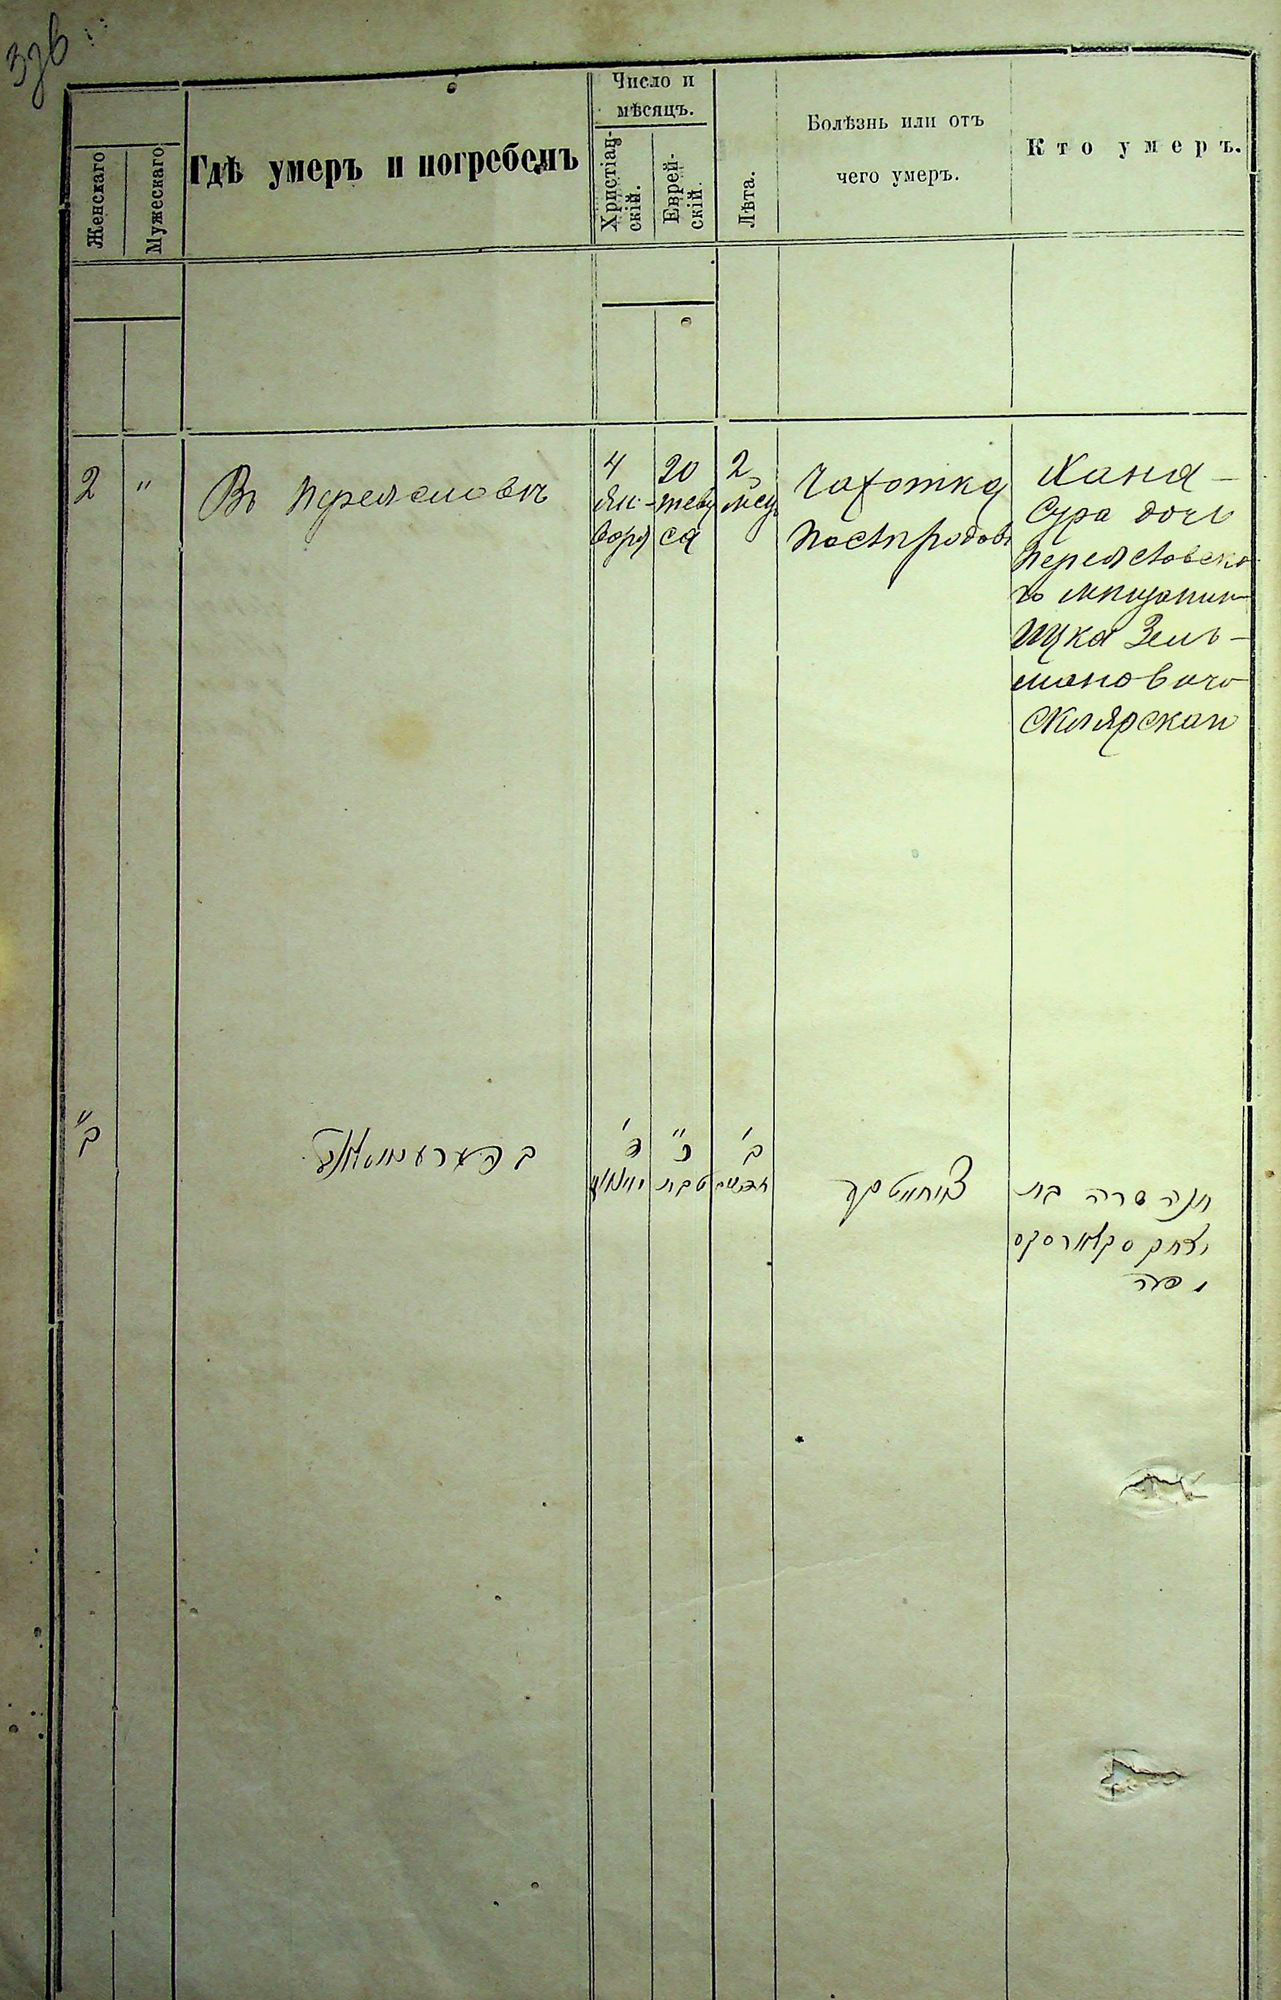 376
Женскаго
Мужескаго
Гдѣ умеръ и погребенъ
Число и
мѣсяцъ.
Христіан-
скій.
Еврей-
скій.
Лѣта.
Болѣзнь или отъ
чего умеръ.
Кто умеръ.
2
"
Въ Переяславѣ
4
Ян-
варя
20
теве
са
2
мец
Чахотка
Хана-
Сура дочь
Переясловско
го мещанин
Ицка Зель-
мановича
Склярскаи
ב"
ד'
יאנואר
כ"
טבת
ב'
חדשים
חנה שרה בת
יצחק סקלארסקי